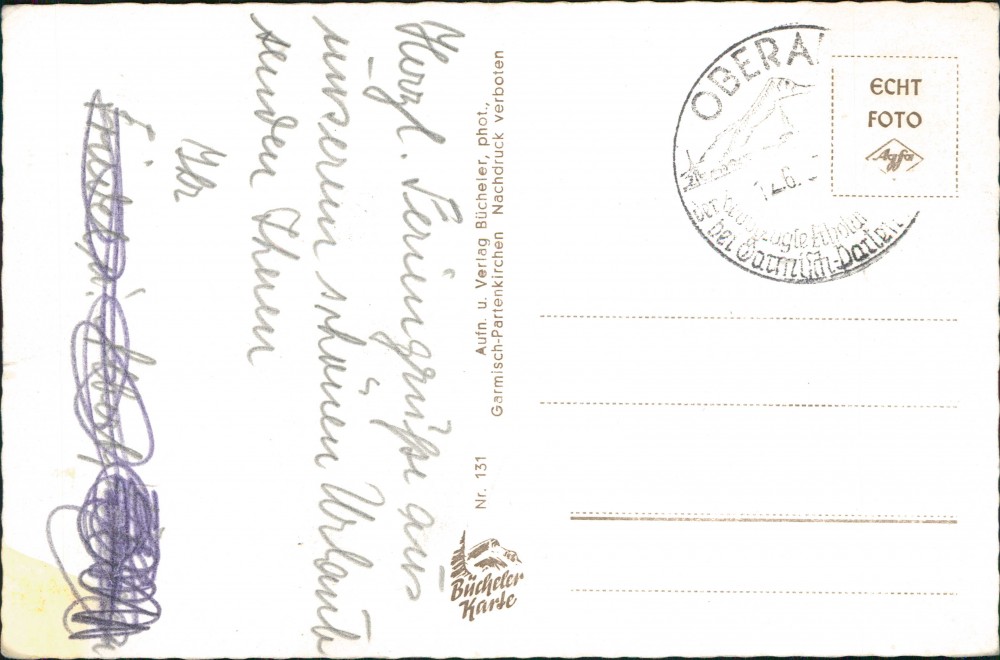 Herzl. Feriengrüße aus
unserem schönen Urlaub
senden Ihnen
Ihr
Aufn. u. Verlag Bücheler, phot.,
Garmisch-Partenkirchen Nachdruck verboten
Nr. 131
Bücheler
Karte
OBERA
12.6.
bei Garmisch-Parten
ECHT
FOTO
Agfa